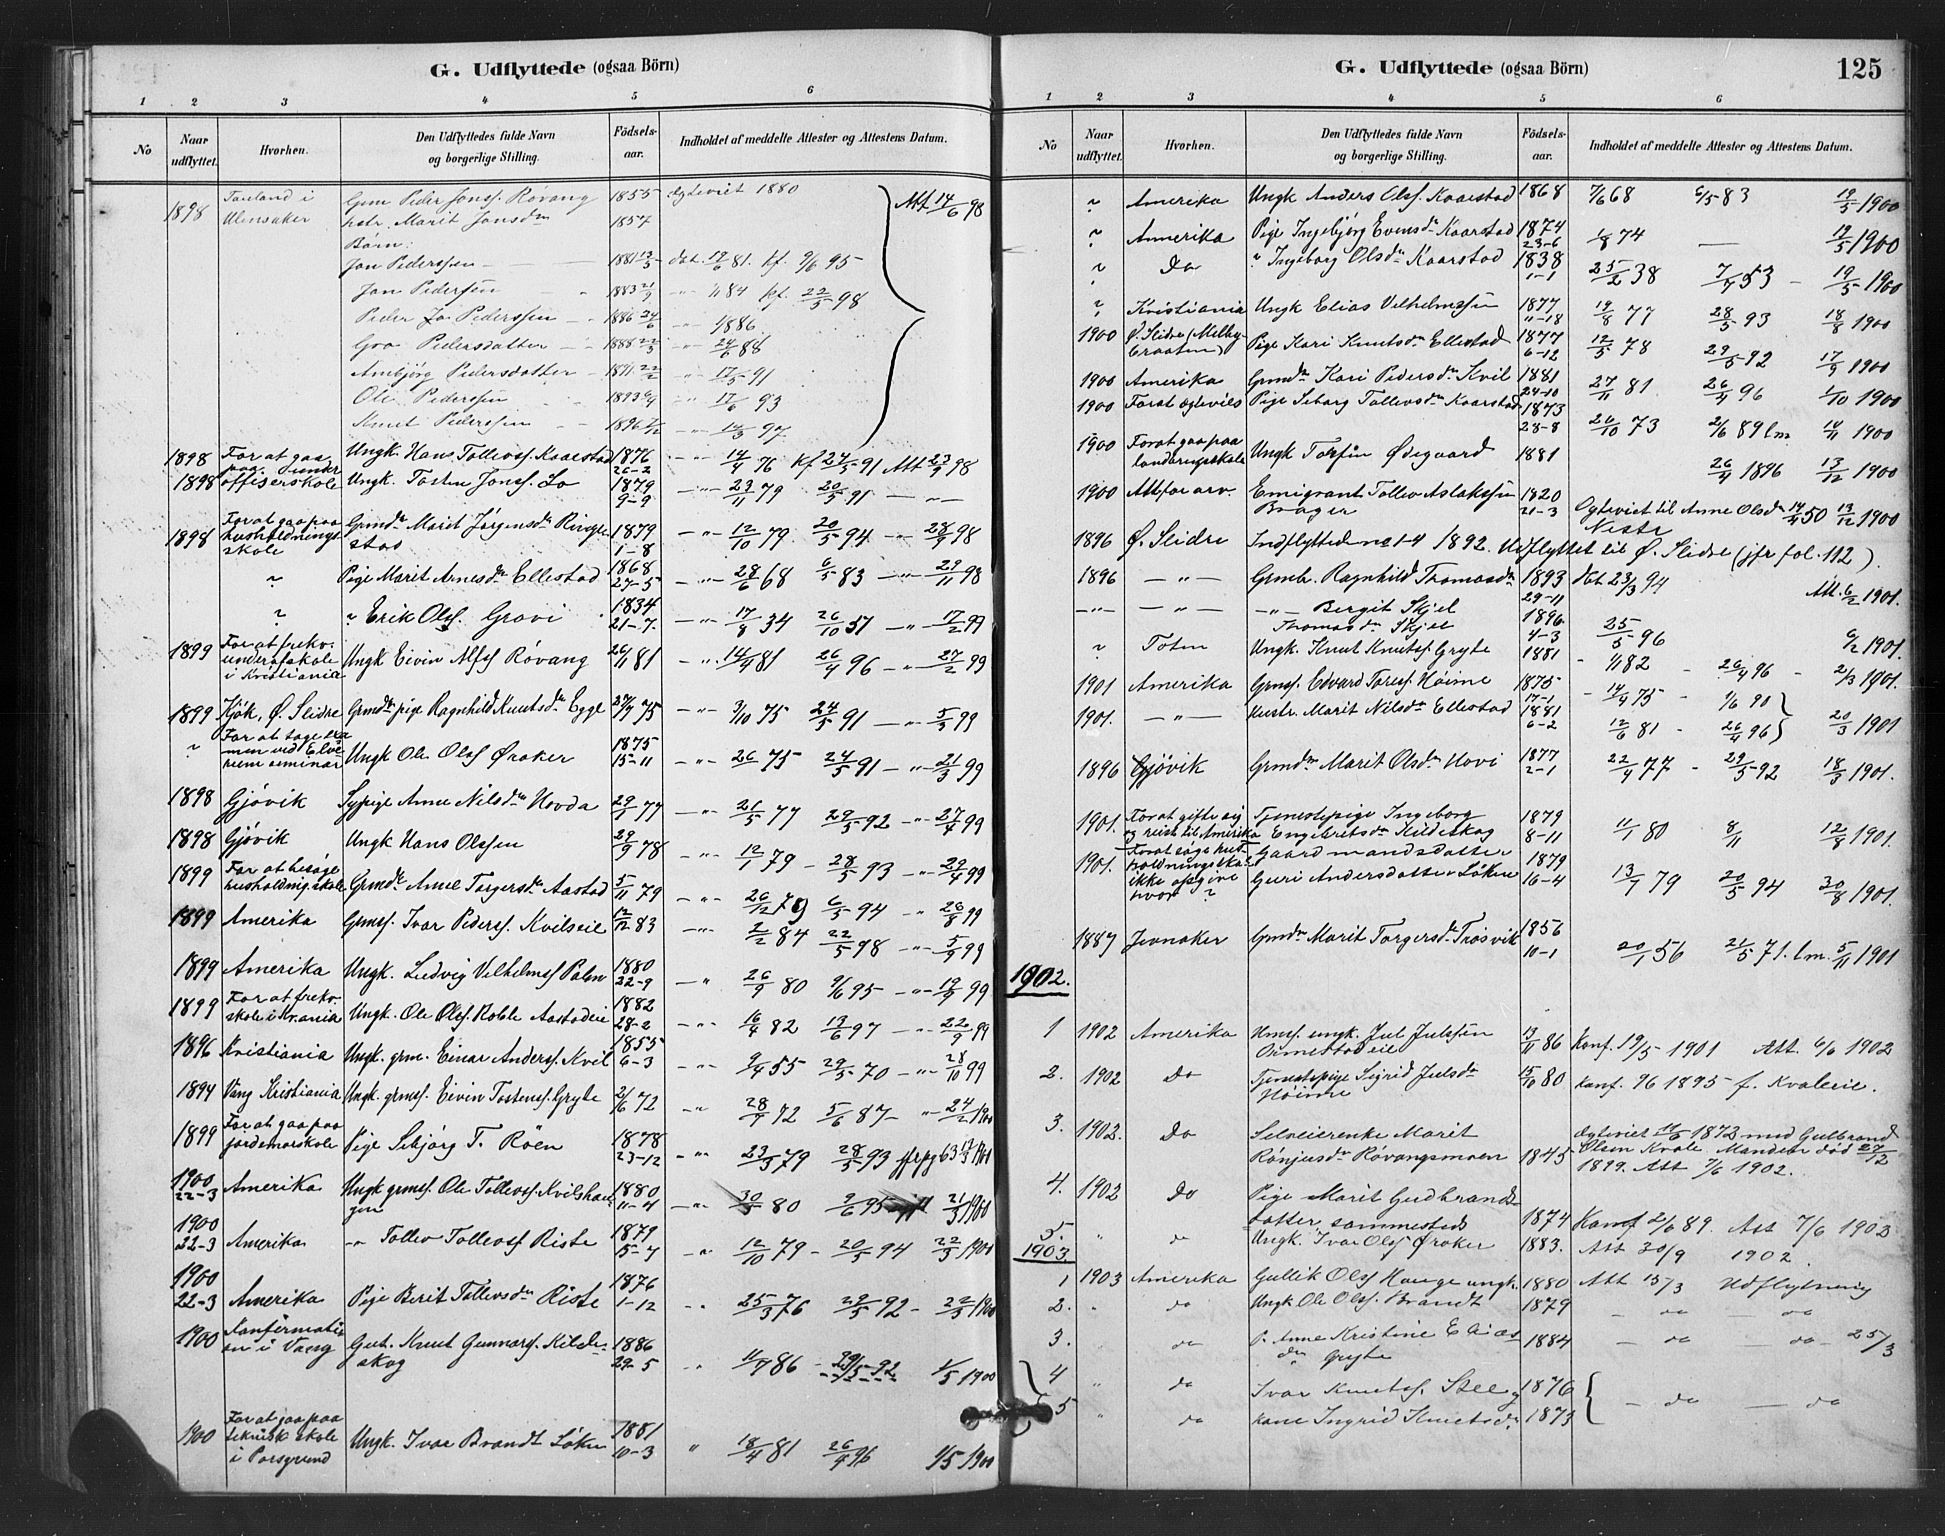 G. Udflyttede (ogsaa Börn)
1 2 3 4 5 6
No
Naar udflyttet.
Hvorhen.
Den Udflyttedes fulde Navn og borgerlige Stilling.
Födsels-aar.
Indholdet af meddelte Attester og Attestens Datum.
1898 Ullensaker Peder Jonss. Rövang 1855 Ægteviet 1880 Att 14/6 98
Marit Jonsdtr 1857
Börn:
Jon Pederssen
Jon Pederssen 22/5 98
Peder Jo Pederssen
Gro Pedersdatter 24/6 88
Ambjörg Pedersdatter 17/5 91
Ole Pederssen 17/6 93
Knut Pederssen 14/3 97
1898 For at gaa paa underofficerskole Ungk. Hans Tollevss. Kaarstad 1876 26-2 14/4 76 kf 24/5 91 Att 23/9 98
1898 Ungk. Tosten Jonss. Lo 1879 9-9 23/11 79 20/5 91
1898 For at gaa paa husholdnings skole Grmdr Marit Jørgensdr Ringestad 1879 1-8 12/10 79 20/5 94 28/9 98
Pige Marit Arnesdr Ellestad 1868 27-5 28/6 68 6/5 83 29/11 98
" Erik Olss. Grovi 1834 21-7 17/8 34 26/10 51 17/2 99
1899 i Kristiania Ungk Eivin Alfss Rövang 26/11 81 14/4 81 26/4 96 27/2 99
1899 Kjök, Ø. Slidre Grmdr pige Ragnhild Knutsdr Egge 27/9 75 3/10 75 24/5 91 5/5 99
For at tage Examen ved Elverum seminar Ungk Ole Olss Øraker 1875 15-11 24/5 91 21/3 99
1898 Gjövik Sypige Anne Nilsdtr Hovda 21/5 77 29/5 92 27/4 99
1898 Gjövik Ungk Hans Olssen 29/9 78 12/1 79 28/5 93 29/4 99
1899 For at besöge husholdnig.skole Grmdr Anne Torgersdr Aastad 5/11 79 26/12 79 6/5 94 26/8 99
1899 Amerika Grmss. Ivar Pederss. Kvilseie 12/12 83 2/2 84 22/5 98 5/9 99
1899 Amerika Ungk. Ludvig Vilhelmss Palm 1880 22-9 26/9 80 9/6 95 19/9 99
1899 Ungk. Ole Olss. Roble Aastadeie 1882 28-2 16/4 82 13/6 97 22/9 99
1896 Kristiania Ungk. grm. Einar Anderss. Kvil 1855 6-3 9/4 55 29/5 70 28/10 99
1894 Vang Kristiania Ungk grmss. Eivin Tostenss. Gryte 2/6 72 28/7 72 5/6 87 24/2 1900
1899 For at gaa paa jordemorskole Pige Sebjörg T. Röen 1878 23-12 23/3 79 28/5 93
1900 22-3 Amerika Ungk grmss. Ole Tollevss. Kvilshaugen 1880 11-4 30/5 80 21/3 1900
1900 22-3 Amerika Tollev Tollevss Riste 1879 15-7 12/10 79 20/5 94 22/3 1900
1900 22-3 Amerika Pige Berit Tollevsdr Riste 1876 1-12 25/3 76 29/5 92 22/3 1900
1900 Konfirmation i Vang Gut. Knut Gunnars. Kildeskog 1886 29-5 11/7 86 1/5 1900
1900 For at gaa paa teknisk skole i Porsgrund Ungk. Ivar Brandt Löken 1881 10-3 18/4 81 26/4 96 1/5 1900
G. Udflyttede (ogsaa Börn) 125
1 2 3 4 5 6
No
Naar udflyttet.
Hvorhen.
Den Udflyttedes fulde Navn og borgerlige Stilling.
Födsels-aar.
Indholdet af meddelte Attester og Attestens Datum.
Amerika Ungk Anders Olss. Kaarstad 1868 7/6 68 6/5 83 19/5 1900
Amerika Pige Ingebjörg Evensdr Kaarstad 1874 23-6 1/8 74 19/5 1900
Do " Ingeborg Olsdr Kaarstad 1838 1-1 25/2 38 7/4 53 19/5 1900
Kristiania Ungk Elias Vilhelmssen 1877 11-18 19/8 77 28/5 93 18/8 1900
1900 Ø. Slidre (Melbybraaten) Pige Kari Knutsdr Ellestad 1877 6-12 12/5 78 29/5 92 17/9 1900
1900 Amerika Grmdr Kari Pedersdr Kvil 1881 24-10 27/11 81 26/4 96 1/10 1900
1900 For at ægtevies Pige Seborg Tollevsdr Kaarstad 1873 23-8 26/10 73 2/6 89 lm 10/11 1900
1900 For at gaa paa landbrugsskole Ungk Torfin Ødegaard 1881 26/4 1896 13/12 1900
1900 Att for arv. Emigrant Tollev Aslakssen Brager 1820 21-3 Ægteviet til Anne Olsdr Neste 14/4 50 13/12 1900
1896 Ø. Slidre Indflyttede no 14 1892. Udflyttet til Ø. Slidre (jfr fol. 112).
1896 Grmb. Ragnhild Thomasdr 1893 29-11 døbt 23/3 94 Att. 6/2 1901.
Bergit Skjel Thomasdr Skjel 1896 4-3 25/5 96 6/2 1901.
Toten Ungk. Knut Knutss Gryte 1881 1/1 82 26/4 96 2/3 1901.
1901 Amerika Grmss. Edvard Toress. Höime 1875 17-1 14/4 75 1/6 90
1901. Hustr. Marit Nilsdr Ellestad 1881 6-2 12/6 81 26/4 96 20/3 1901
1896 Gjövik Grmdr Marit Olsdr Hovi 1877 2-1 22/4 77 29/5 92 18/5 1901.
1901. For at gifte sig og reise til Amerika Tjenestepige Ingeborg Engebretsdr Kildeskog 1879 8-11 11/1 80 8/11 12/8 1901.
1901. For at söge husholdningsskole ikke opgive hvor? Gaardmandsdatter Guri Andersdatter Löken 1879 16-4 13/7 79 20/5 94 30/8 1901.
1887 Jevnaker Grmdr Marit Torgersdr Trosvik 1856 10-1 20/1 56 21/5 71. lm. 5/11 1901
1902.
1 1902 Amerika Hmss. ungk. Jul Julssen 13/11 86 Konf. 19/5 1901 Att. 6/6 1902
2. 1902 Do Tjenestepige Sigrid Julsdr Höime 15/10 80 Konf. 9/6 1895 f. Kvaleeie.
3. 1902. Do Selveierenke Marit Rönjusdr Rövangsmoen 1845 Ægteviet 1872 med Gulbrand Olsen Kvale. Manden död 27/12 1899. Att 7/6 1902.
4. 1902 Do Pige Marit Gudbrandsdatter sammesteds 1874 Konf 2/6 89. Att 7/6 1902
5. " do Ungk. Ivar Olss Öraker 1883. Att 30/9 1902.
1903.
1 1903 Amerika Gullik Olss Hauge ungk. 1880 Att 15/3 Udflytning
2. " do Ungk Ole Olss. Brandt 1879 do do
3. " do P. Anne Kristine Eliasdr Gryte 1884 do do 25/3
4 " do Ivar Knutss. Steeg 1876 do do
5 " do kone Ingrid Knutsdr 1873